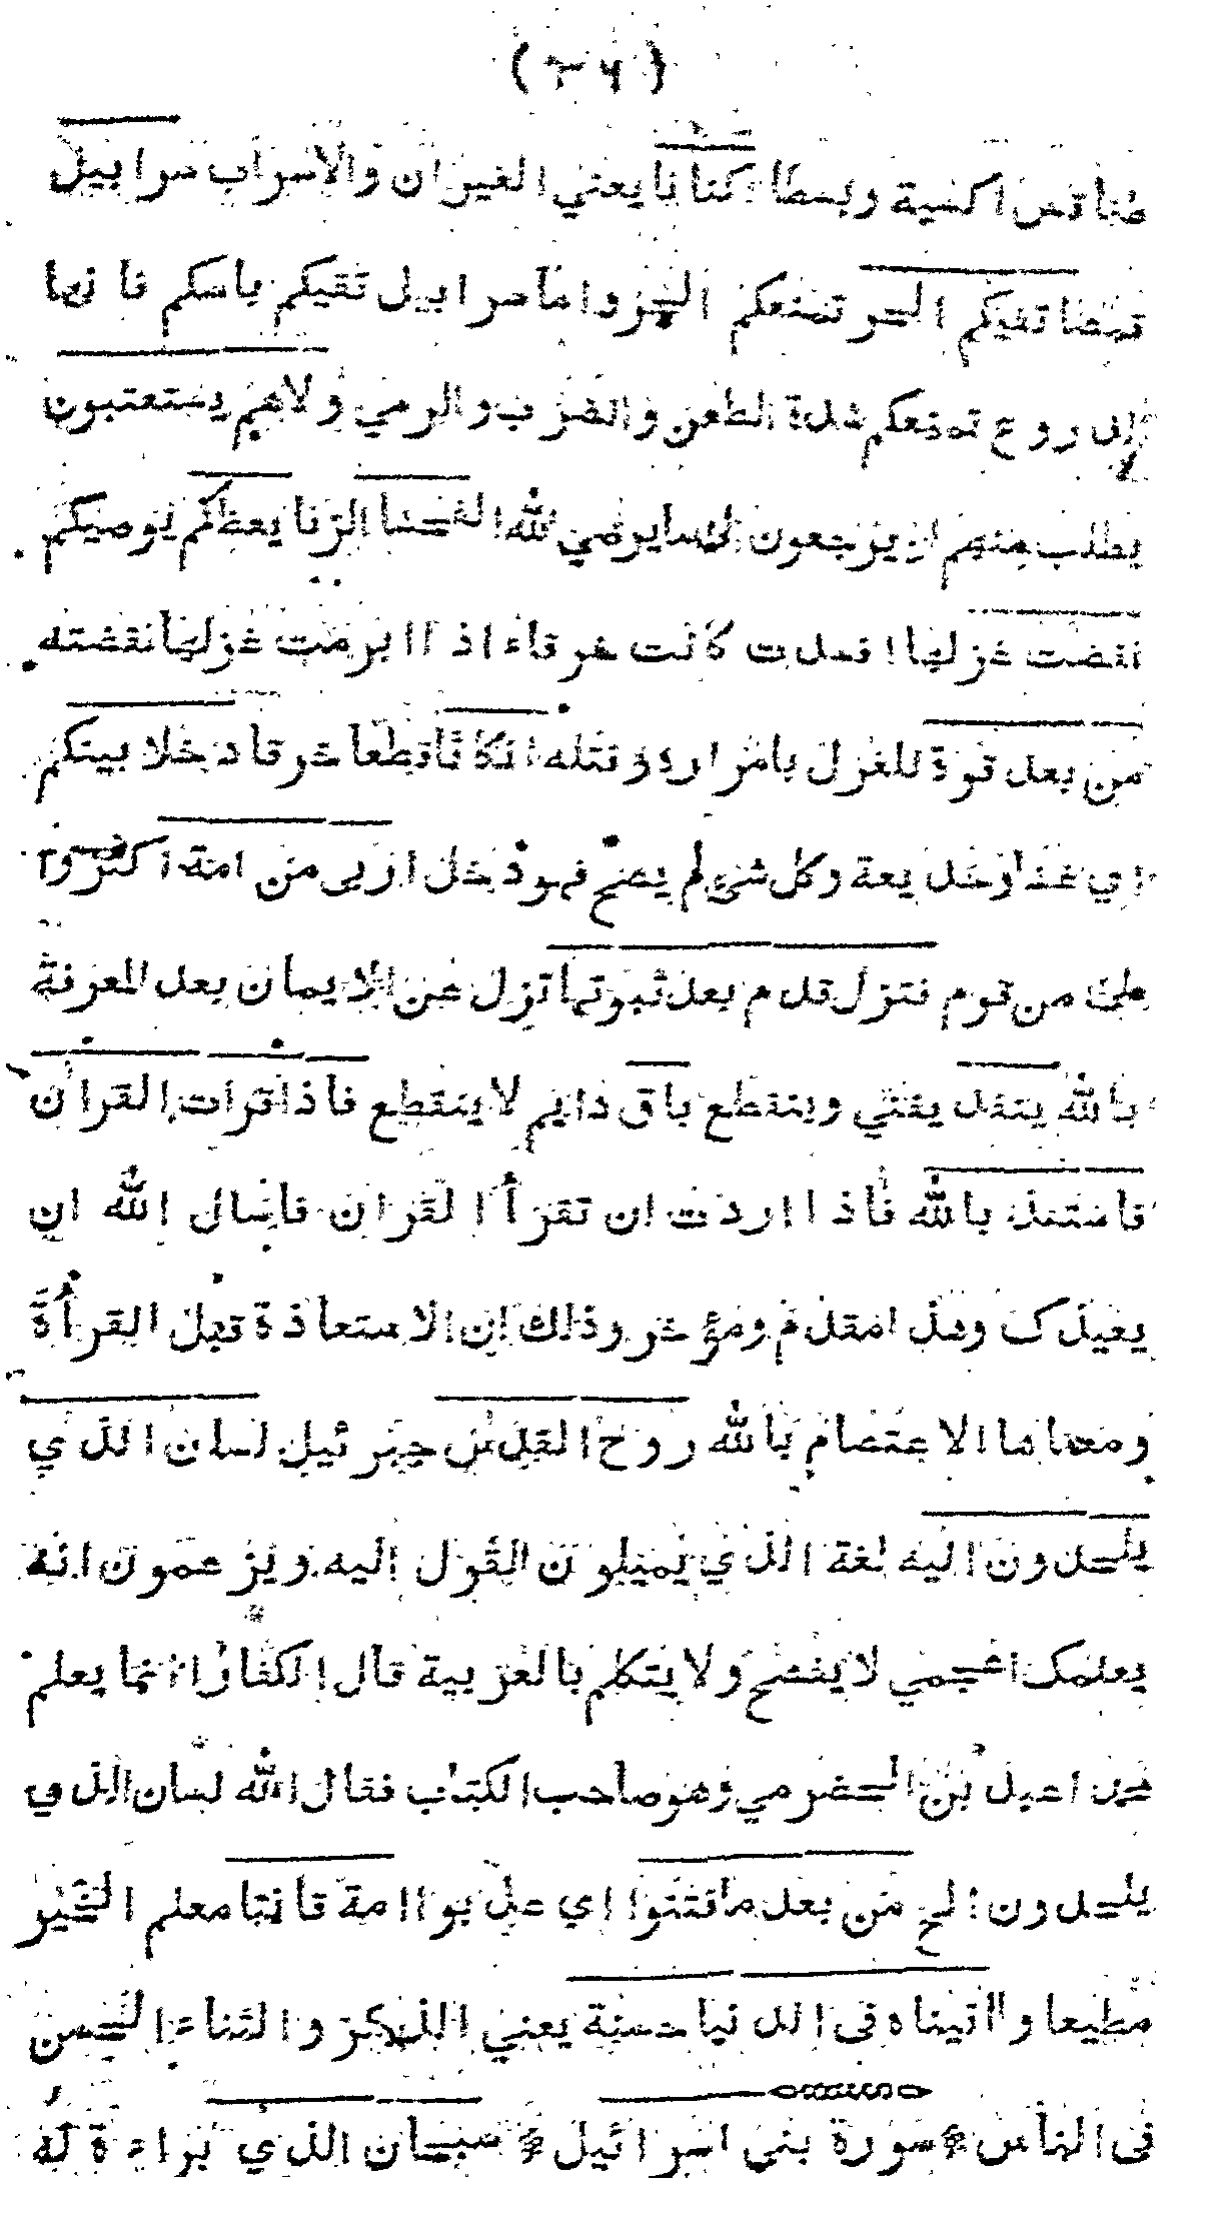 ( ٣٦ )
طنافس اكسية وبسطا اكنانا يعني الغيران والاسراب سرابيل
قمصا تقيكم الحر تمنعكم الحر واما سرابيل تقيكم باسكم فانها
الدروع تدفعكم شدة الطعن والضرب والرمي ولاهم يستعتبون
يطلب منهم ان يرجعون الى ما يرضي لله الفحشا الزنا يعظكم يوصيكم
نقضت غزلها افسدت كانت خرقاء اذ اابرمت غزلها نقضته
من بعد قوة للغزل بامراره وفتله انكاثا قطعا خرقا دخلا بينكم
اي غدا وخديعة وكل شيء لم يصح فهو دخل اربى من امة اكثروا
على من قوم فتزل قدم بعد ثبوتها تزل عن الايمان بعد المعرفة
بالله ينفد يفني وينقطع باق دايم لا ينقطع فاذا قرات القران
فاستعذ بالله فاذ ا اردت ان تقرأ القران فاسال الله ان
يعيذك وهذ امقدم ومؤخر وذلك ان الاستعاذة قبل القرأة
ومعناها الاعتصام بالله روح القدس جبرئيل لسان الذي
يلحدون اليه لغة الذي يميلون القول اليه ويزعمون انه
يعلمك اعجمي لا يفصح ولا يتكلم بالعربية قال الكفار انما يعلم
محمدا عبد بن الحضرمي وهو صاحب الكتاب فقال الله لسان الذي
يلحدون الخ من بعد ما فتنوا اي عذبوا امة قانتا معلم الخير
مطيعا وااتيناه فى الدنيا حسنة يعني الذكر والثناء الحسن
فى الناس سورة بني اسرائيل سبحان الذي براءة له